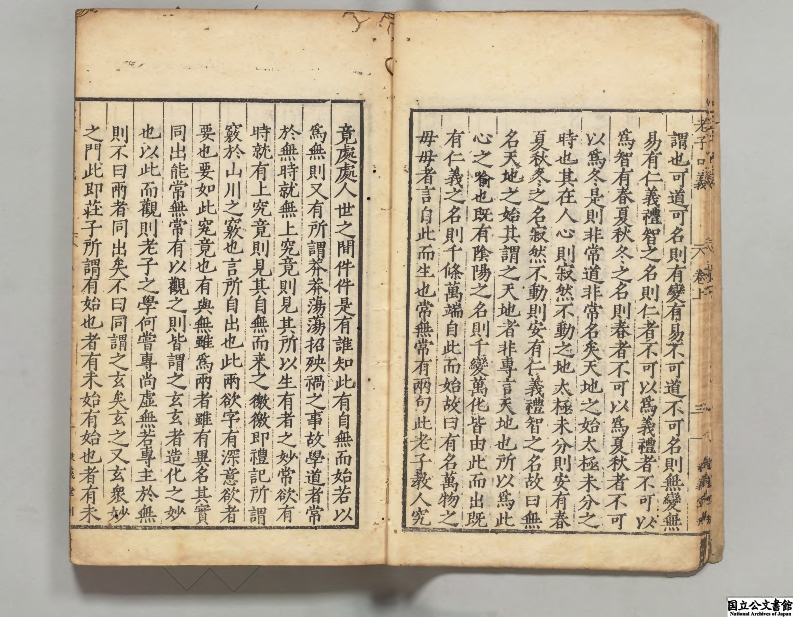 謂也可道可名則有變有易不可道不可名則無變無
易有仁義禮智之名則仁者不可以爲義禮者不可以
爲智有春夏秋冬之名則春者不可以爲夏秋者不可
以爲冬是則非常道非常名矣天地之始太極未分之
時也其在人心則寂然不動之地太極未分則安有春
夏秋冬之名寂然不動則安有仁義禮智之名故曰無
名天地之始其謂之天地者非專言天地也所以爲此
心之喻也既有陰陽之名則千變萬化皆由此而出既
有仁義之名則千條萬端自此而始故曰有名萬物之
母母者言自此而生也常無常有兩句此老子教人究
竟處處人世之間件件是有誰知此有自無而始若以
爲無則又有所謂莽莽蕩蕩招殃禍之事故學道者常
於無時就無上究竟則見其所以生有者之妙常欲有
時就有上究竟則見其自無而来之徼徼即禮記所謂
竅於山川之竅也言所自出也此兩欲字有深意欲者
要也要如此究竟也有與無雖爲兩者雖有異名其實
同出能常無常有以觀之則皆謂之玄玄者造化之妙
也以此而觀則老子之學何嘗專尚虛無若專主於無
則不曰兩者同出矣不曰同謂之玄矣玄之又玄衆妙
之門此即莊子所謂有始也者有未始有始也者有未
老子口義
卷上
三
国立公文書館
National Archives of Japan